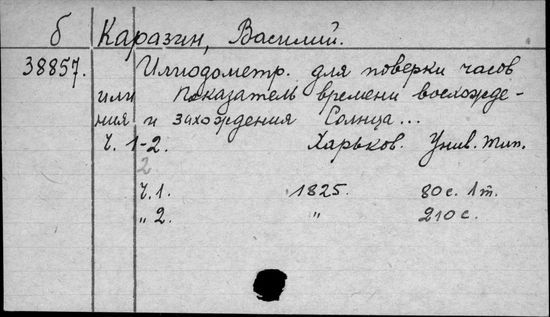 б Каразин, Василий.
38857. Илиодометр. для поверки часов
или Показатель времени восхожде-
ния и захождения Солнца...
Ч. 1-2. Харьков. Унив. тип.
2
Ч.1. 1825. 80 с. 1 т.
„ 2. „ 210 с.